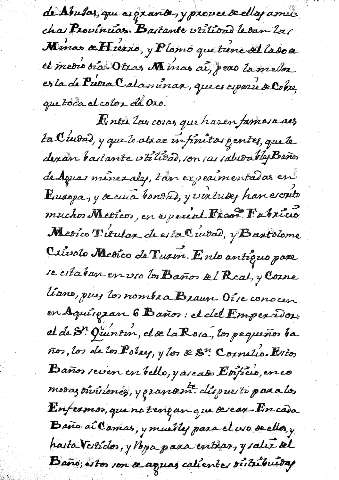 de Abujas, que es grande, y provee de ellas a mu-
chas Provincias. Bastante utilidad le dan las
Minas de Hierro, y Plomo que tiene del lado a
el medio dia. Otras Minas ai, pero la mejor
es la de Piedra Calaminar, que es especie de Cobre,
que toca el color de Oro.
Entre las cosas que hazen famosa a es
ta Ciudad, y que lo atrae infinitas gentes, que le
dexan bastante utilidad, son sus saludables Baños
de Aguas minerales, tan experimentadas en
Europa, y de cuia bondad, y virtudes han escrito
muchos Medicos, en especial Franco. Fabricio
Medico Titular de esta Ciudad, y Bartolome
Crivolo Medico de Turin. En lo antiguo pare
se estaban en uso los Baños de el Real, y Corne
liano, pues los nombra Braun. Oi se conocen
en Aquisgran 6 Baños: el del Emperador,
el de Sn. Quintin, el de la Rosa, los pequeños ba
ños, los de los Pobres, y los de Sn. Cornelio. Estos
Baños se ven en bello, y aseado Edificio, en co
modas divisiones, y grandemte. dispuesto para los
Enfermos, que no tengan que desear. En cada
Baño ai Camas, y muebles para el uso de ellos, y
hasta Vestidos, y Ropa para entrar, y salir del
Baño; estos son de aguas calientes distribuidas